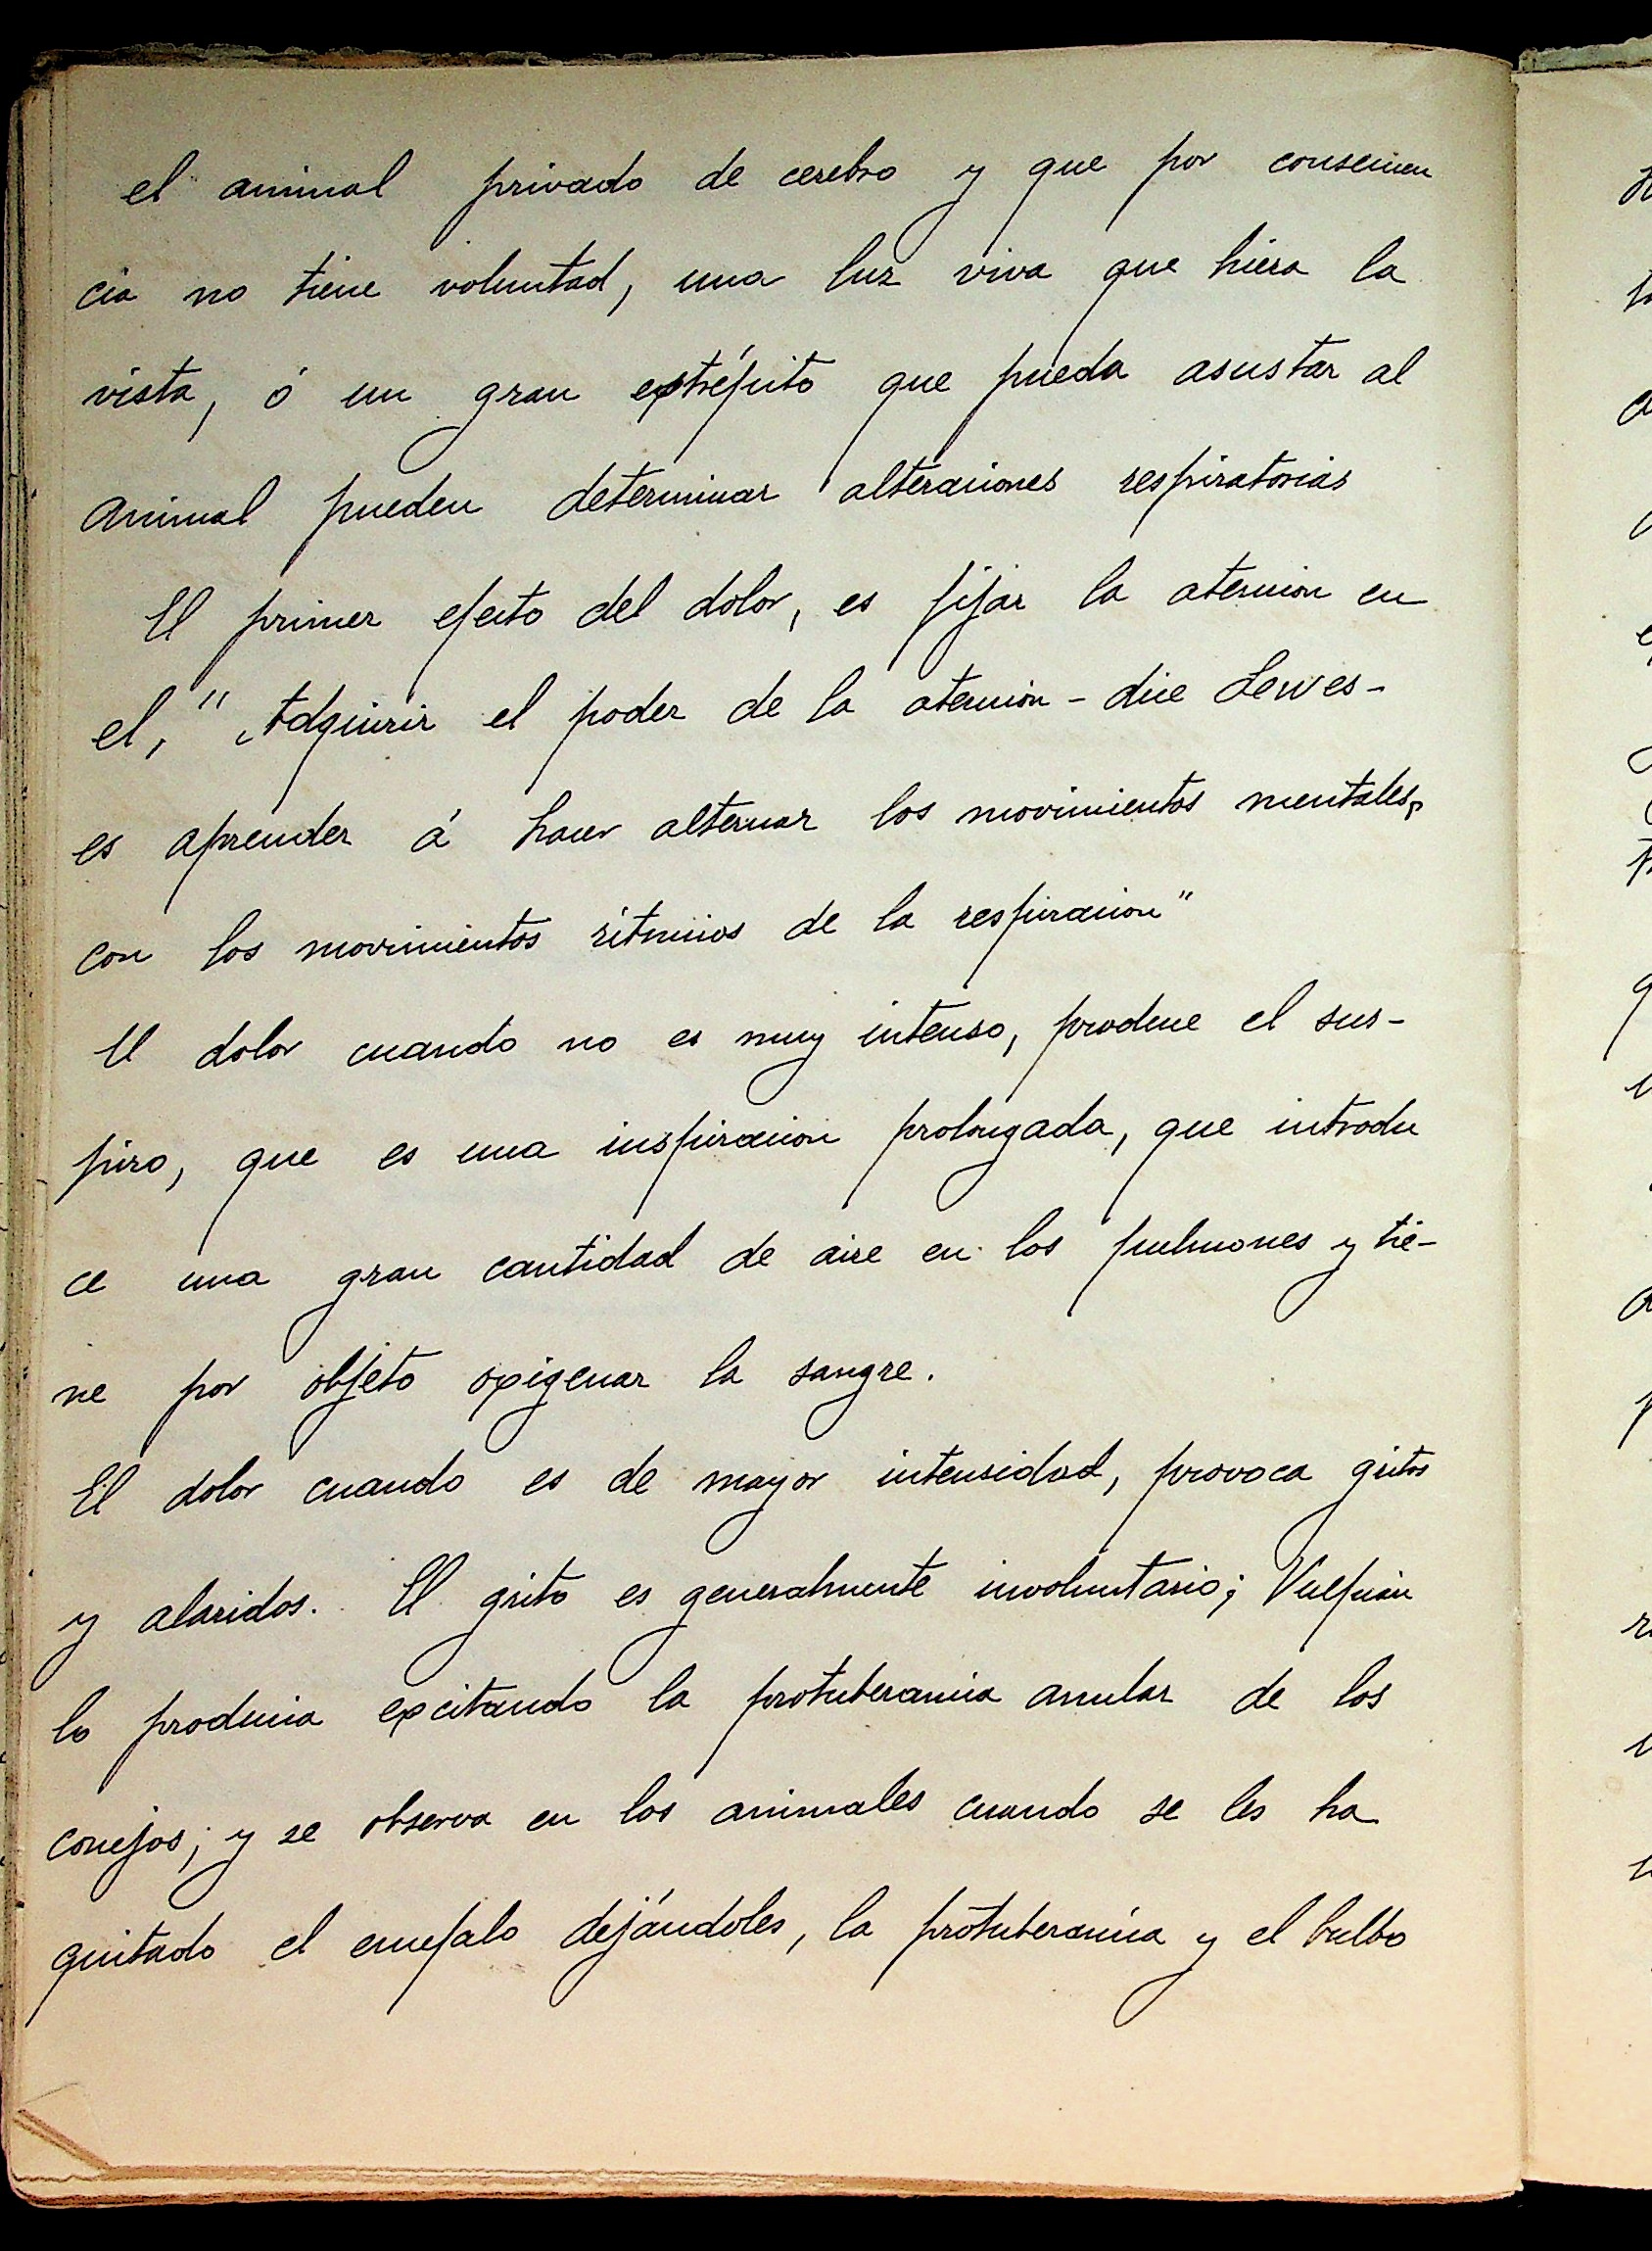 el animal privado de cerebro y que por consecuen
cia no tiene voluntad, una luz viva que hiera la
vista, ó un gran extrépito que pueda asustar al
animal pueden determinar alteraciones respiratorias
El primer efecto del dolor, es fijar la atencion en
el, " Adquirir el poder de la atencion - dice Lewes -
es aprender á hacer alternar los movimientos mentales,
con los movimientos rítmicos de la respiracion"
El dolor cuando no es muy intenso, produce el sus-
piro, que es una inspiracion prolongada, que introdu
ce una gran cantidad de aire en los pulmones y tie-
ne por objeto oxigenar la sangre.
El dolor cuando es de mayor intensidad, provoca gritos
y alaridos. El grito es generalmente involuntario; Vulpian
lo producia excitando la protuberancia anular de los
conejos; y se observa en los animales cuando se les ha
quitado el encefalo dejándoles, la protuberancia y el bulbo